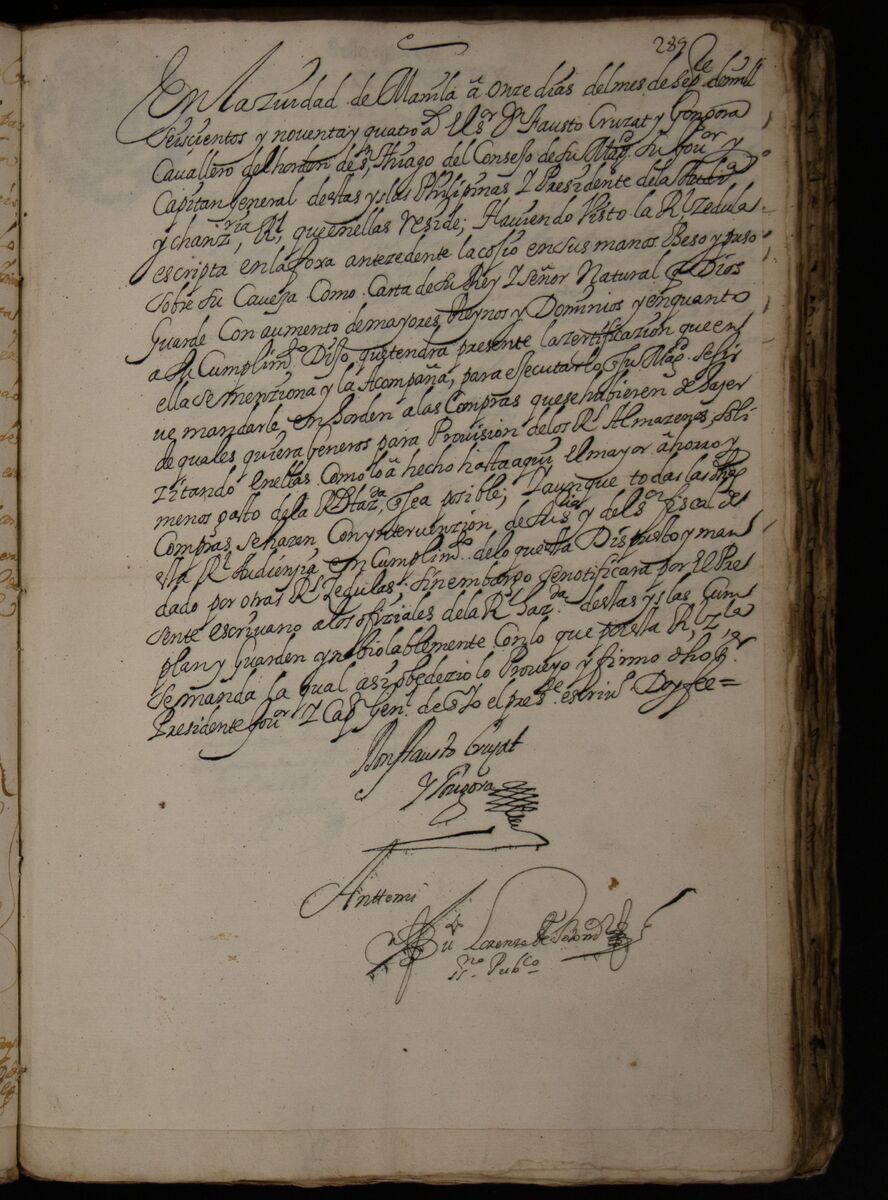 289
En la ziudad de Manila â onze dias del mes de Sepᵗᵉ de mill
seiscientos y noventa y quatro aˢ. El sʳ Dⁿ Fausto Cruzat y Gongora
Cavallero del horden de sⁿ thiago del Consejo de su Magᵈ su Govʳ y
Capitan general destas yslas Philipinas y Presidente de la Audiᵃ
y chanzʳⁱᵃ Rˡ que en ellas reside; Haviendo visto la Rˡ Zedula
escripta en la foxa antezedente la cojio en sus manos Beso y puso
sobre su Caveza Como Carta de su Rey y señor Natural q Dios
Guarde Con aumento de mayores Reynos y Dominios y en quanto
a su Cumplimᵗᵒ Dijo que tendra presente la zertificazion que en
ella se menziona y la Acompaña, para executar lo q su Magᵈ se sir
ve mandarle en horden a las Compras que se hubieren de hazer
de quales quiera Generos para Provision de los Rˢ Almazenes, soli
zitando en ellas Como lo â hecho hasta aqui el mayor ahorro y
menos gasto de la Rˡ Hazᵈᵃ q sea posible; y aunque todas las
Compras se hazen Con yntervenzion de su sʳⁱᵃ y del sʳ fiscal de
esta Rˡ Audienzia en Cumplimᵗᵒ de lo que esta Dispuesto y man
dado por otras Rˢ Zedulas. sin embargo se notificara por el Pre
sente escrivano a los ofiziales de la Rˡ hazᵈᵃ destas yslas Cum
plan y Guarden ynbiolablemente Con lo que por esta Rˡ Zˡᵃ
se manda la qual asi obedezio lo Proveyo y firmo dho sʳ
Presidente Govʳ y Capⁿ Genˡ de q Yo el presᵗᵉ escrivⁿᵒ Doy fee =
Don Fausto Cruzat
y Gongora
Antte mi
Lorenzo
nᵒ Pubᶜᵒ